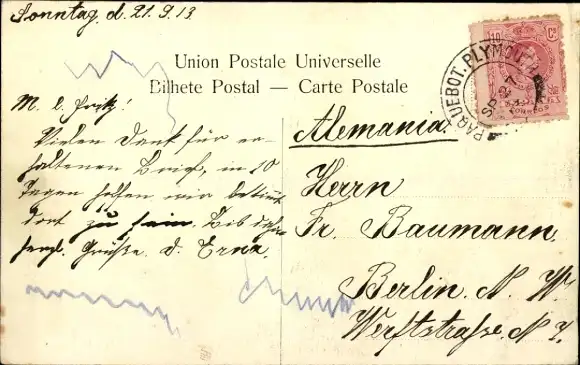 Sonntag, d. 21.9.13.
Union Postale Universelle
Bilhete Postal — Carte Postale
10 Cs
CORREOS
PAQUEBOT. PLYMOUTH
SP 24
M. l. Fritz!
Vielen Dank für er-
haltenen Brief, in 10
Tagen hoffen wir bestimmt
dort zu sein. Bib dahin
herzl. Grüße d. Erna.
Alemania.
Herrn
Fr. Baumann.
Berlin. N. W.
Werftstrasse. N 7.